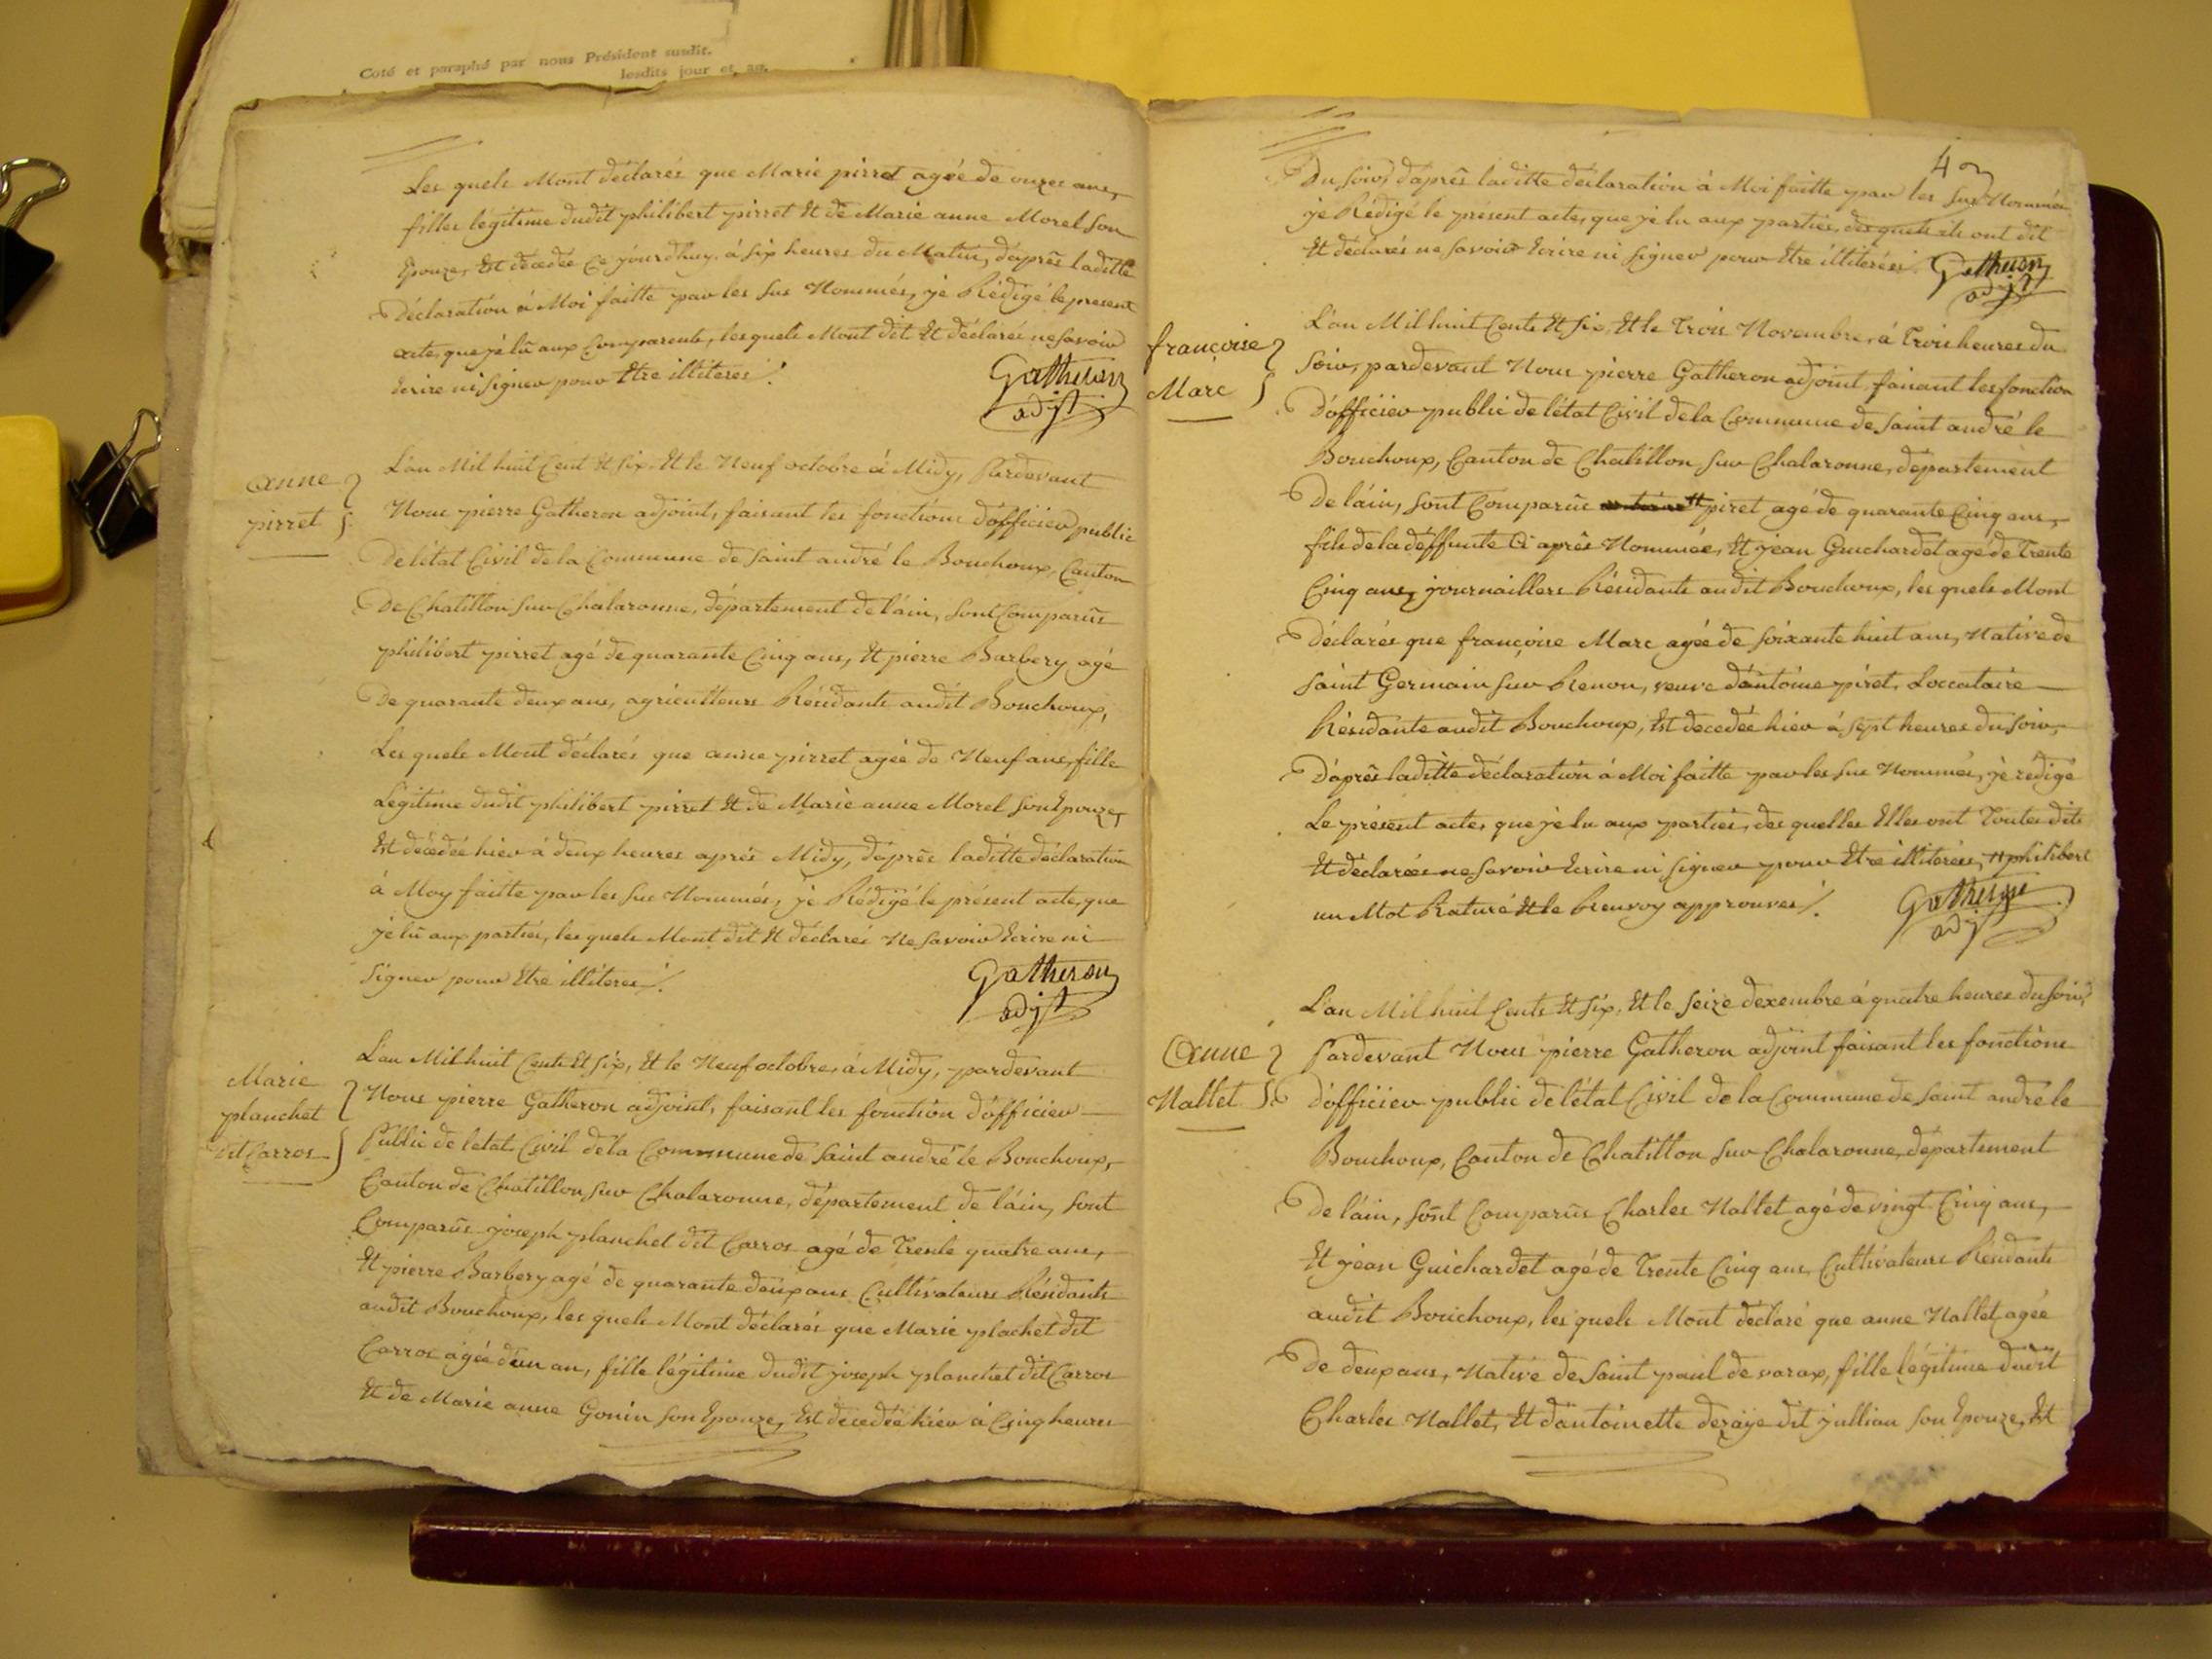 Coté et paraphé par nous Président susdit.
lesdits jour et an.
Les quels Mont déclarés que Marie pirret agée de onze ans,
fille légitime dudit philibert pirret Et de Marie anne Morel son
Epouze, Est décedée Ce jourdhuy à six heures du Matin, d'aprês laditte
Déclaration à Moi faitte par les sus Nommés, jé Rédigé le present
acte, que jé lû aux Comparents, lesquels Mont dit Et déclarés ne savoir
Ecrire ni signer pour Etre illiterés/.
Gatheron
adjt
anne
pirret
L'an Mil huit Cent Et six, Et le Neuf octobre à Midy, Pardevant
Nous pierre Gatheron adjoint, faisant les fonctions d'officier public
De létat Civil de la Commune de saint andré le Bouchoux, Canton
De Chatillon sur Chalaronne, département de l'ain, sont Comparûs
philibert pirret agé de quarante Cinq ans, Et pierre Barbery agé
De quarante deux ans, agriculteurs Résidants audit Bouchoux,
Les quels Mont déclarés que anne pirret agée de Neuf ans, fille
Légitime dudit philibert pirret Et de Marie anne Morel son Epouze,
Est décédée hier à deux heures aprés Midy, d'aprês laditte déclaration
à Moy faitte par les sus Nommés, jé Rédigé le présent acte, que
jé lû aux parties, les quels Mont dit Et déclarés Ne savoir Ecrire ni
signer pour Etre illiterés/.
Gatheron
adjt
Marie
planchet
dit Carros
L'an Mil huit Cents Et six, Et le Neuf octobre, à Midy, pardevant
Nous pierre Gatheron adjoint, faisant les fonction d'officier
Public de létat Civil de la Commune de saint andré le Bouchoux,
Canton de Chatillon sur Chalaronne, département de l'ain, sont
Comparûs joseph planchet dit Carros agé de Trente quatre ans,
Et pierre Barbery agé de quarante deux ans Cultivateurs Résidants
audit Bouchoux, les quels Mont déclarés que Marie plachet dit
Carros agée d'un an, fille légitime dudit joseph planchet dit Carros
Et de Marie anne Gonin son Epouze, Est décedée hier à Cinq heures
4
Du soir, d'aprês laditte déclaration à Moi faitte par les sus Nommés
jé Rédigé le présent acte, que jé lu aux parties, des quels ils ont dit
Et déclarés ne savoir Ecrire ni signer pour Etre illiterés/.
Gatheron
adjt
françoise
Marc
L'an Mil huit Cents Et six, Et le Trois Novembre, à Trois heures du
soir, pardevant Nous pierre Gatheron adjoint, faisant les fonction
D'officier public de létat Civil de la Commune de saint andré le
Bouchoux, Canton de Chatillon sur Chalaronne, département
De l'ain, sont Comparûs # piret agé de quarante Cinq ans,
fils de la déffunte Ci aprês Nommée, Et jean Guichardet agé de Trente
Cinq ans, journailliers Résidants audit Bouchoux, les quels Mont
Déclarés que françoise Marc agée de soixante huit ans, Native de
saint Germain sur Renon, veuve d'antoine piret, Loccataire
Résidante audit Bouchoux, Est decedée hier à sept heures du soir,
D'aprês laditte déclaration à Moi faitte par les sus Nommés, jé redigé
Le présent acte, que jé lu aux parties, des quelles Elles ont Toutes dits
Et déclarées ne savoir Ecrire ni signer pour Etre illiterées, # philibert
un Mot Raturé Et le Renvoy approuvés/.
Gatheron
adjt
anne
Nallet
L'an Mil huit Cents Et six, Et le seize dexembre à quatre heures du soir,
Pardevant Nous pierre Gatheron adjoint faisant les fonctions
D'officier public de létat Civil de la Commune de saint andré le
Bouchoux, Canton de Chatillon sur Chalaronne, département
De l'ain, sont Comparûs Charles Nallet agé de vingt Cinq ans,
Et jean Guichardet agé de Trente Cinq ans Cultivateurs Résidants
audit Bouchoux, les quels Mont déclaré que anne Nallet, agée
De deux ans, Native de saint paul de varax, fille légitime dudit
Charles Nallet, Et d'antoinette dezaÿe dit jullian son Epouze, Est